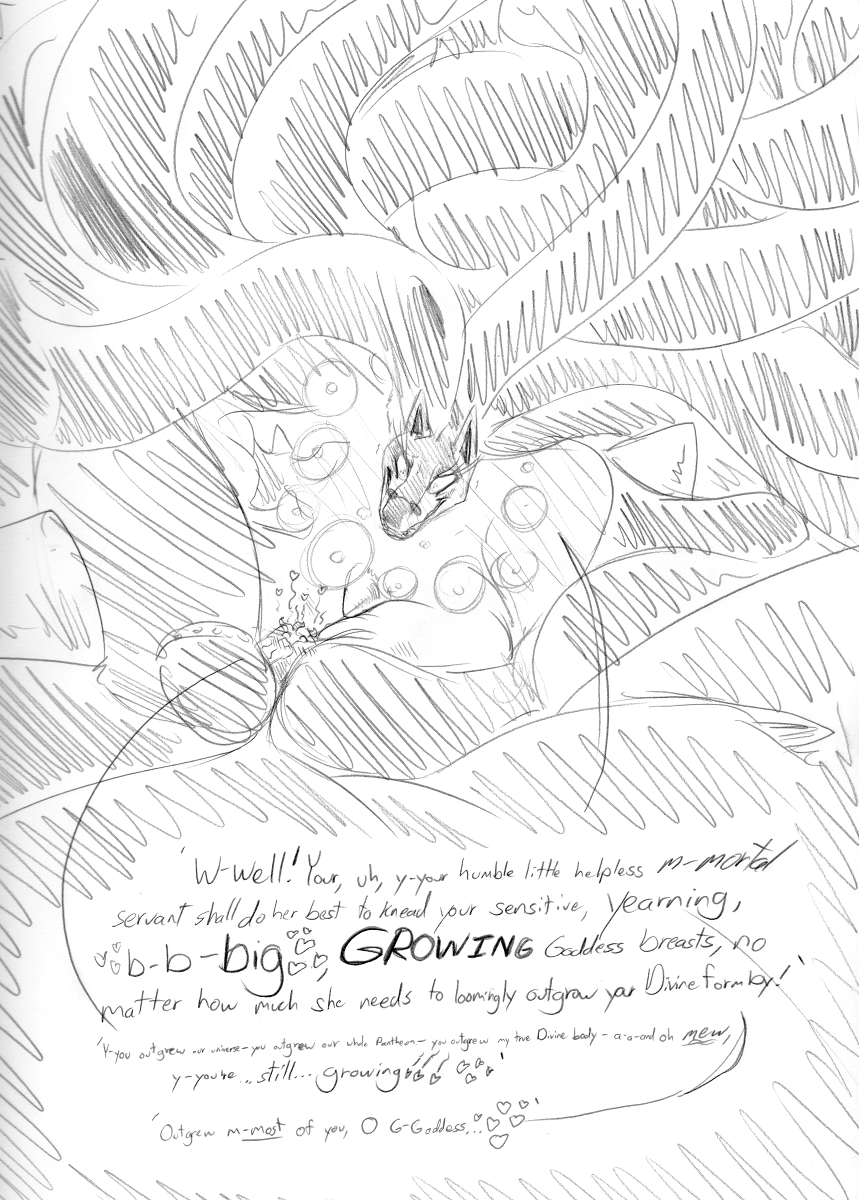 'W-Well! Your, uh, y-your humble little helpless m-mortal
servant shall do her best to knead your sensitive, yearning,
b-b-big, GROWING Goddess breasts, no
matter how much she needs to loomingly outgrow your Divine form by!'
'Y-you outgrew our universe - you outgrew our whole Pantheon - you outgrew my true Divine body - a-a-and oh mew,
y-you're... still... growing!!!'
'Outgrew m-most of you, O G-Goddess...'